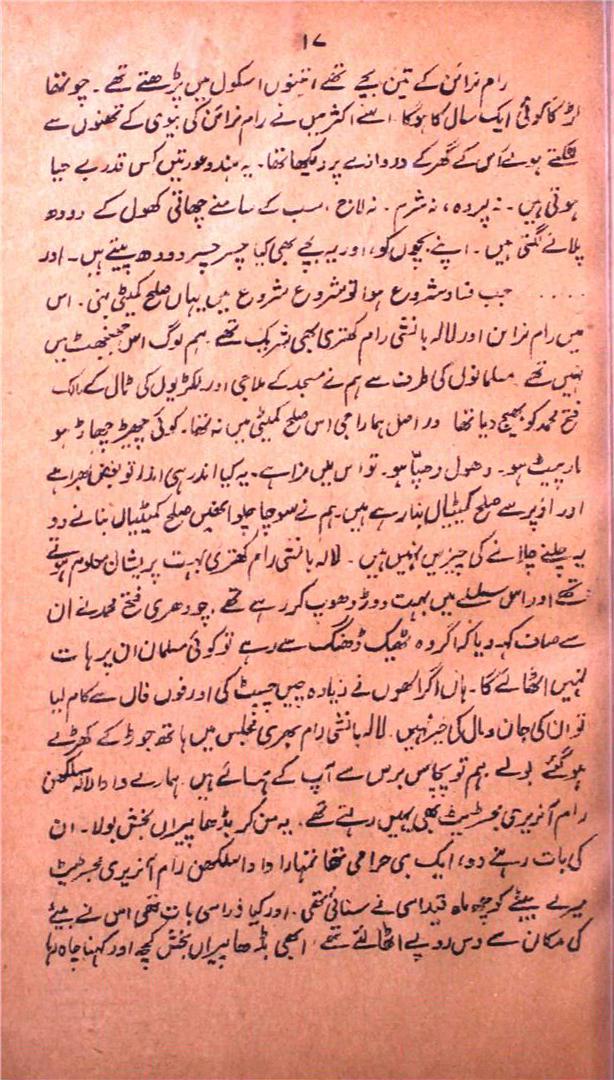 ۱۷
رام نرائن کے تین بچے تھے، تینوں اسکول میں پڑھتے تھے۔ چوتھا
لڑکا کوئی ایک سال کا ہوگا اسے اکثر میں نے رام نرائن کی بیوی کے تھنوں سے
لٹکتے ہوئے اُس کے گھر کے دروازے پر دیکھا تھا۔ یہ ہندو عورتیں کس قدر بے حیا
ہوتی ہیں۔ نہ پردہ، نہ شرم۔ نہ لاج، سب کے سامنے چھاتی کھول کے دودھ
پلانے لگتی ہیں۔ اپنے بچوں کو، اور یہ بچے بھی کیا چسر چسر دودھ پیتے ہیں۔ اور
.... جب فساد شروع ہوا تو شروع شروع میں یہاں صلح کمیٹی بنی۔ اس
میں رام نرائن اور لالہ بانشی رام کھتری بھی شریک تھے ہم لوگ اس جھنجھٹ میں
نہیں تھے مسلمانوں کی طرف سے ہم نے مسجد کے ملا جی اور لکڑیوں کی ٹال کے مالک
فتح محمد کو بھیج دیا تھا در اصل ہمارا جی اس صلح کمیٹی میں نہ تھا۔ کوئی چھیڑ چھاڑ ہو
مار پیٹ ہو۔ دھول دھپا ہو۔ تو اس میں مزا ہے۔ یہ کیا اندر ہی اندر تو بغض بھرا ہے
اور اوپر سے صلح کمیٹیاں بنا رہے ہیں۔ ہم نے سوچا چلو انھیں صلح کمیٹیاں بنانے دو
یہ چلنے چلانے کی چیزیں نہیں ہیں۔ لالہ بانشی رام کھتری بہت پریشان معلوم ہوتے
تھے اور اس سلسلے میں بہت دوڑ دھوپ کر رہے تھے، چودھری فتح محمد نے ان
سے صاف کہہ دیا کہ اگر وہ ٹھیک ڈھنگ سے رہے تو کوئی مسلمان ان پر ہات
نہیں اٹھائے گا۔ ہاں اگر انھوں نے زیادہ چیں چپٹ کی اور فوں فاں سے کام لیا
تو ان کی جان و مال کی خیر نہیں۔ لالہ بانشی رام بھری مجلس میں ہاتھ جوڑ کے کھڑے
ہو گئے بولے ہم تو پچاس برس سے آپ کے ہمسائے ہیں۔ ہمارے دادا لالہ سلکھن
رام آنریری مجسٹریٹ بھی یہیں رہتے تھے، یہ سن کر بڈھا پیراں بخش بولا۔ ان
کی بات رہنے دو، ایک ہی حرامی تھا تمہارا دادا سلکھن رام آنریری مجسٹریٹ
میرے بیٹے کو چھ ماہ قید اسی نے سنائی تھی۔ اور کیا ذراسی بات تھی اس نے بیٹے
کی مکان سے دس روپے اٹھا لئے تھے، ابھی بڈھا پیراں بخش کچھ اور کہنا چاہ رہا